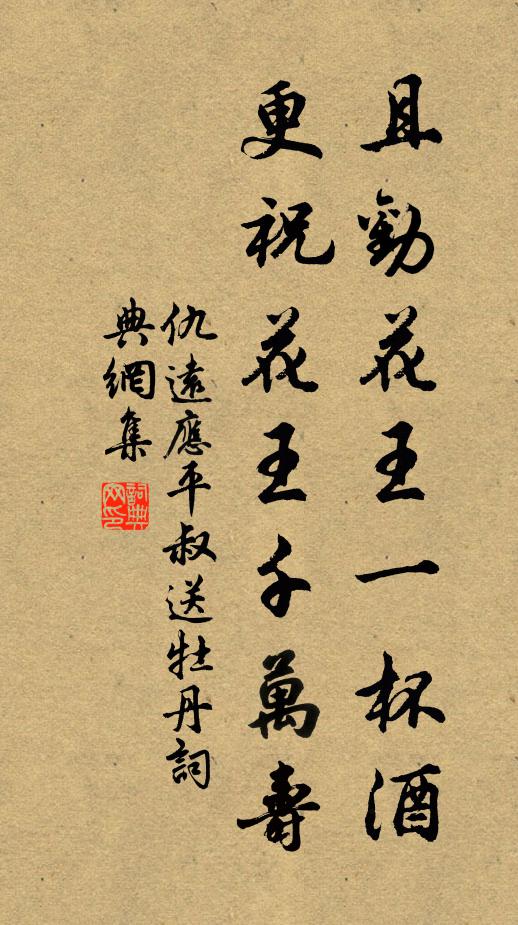 且勸花王一杯酒
更祝花王千萬壽
仇遠應平叔送牡丹詞
典網集
詞典网印